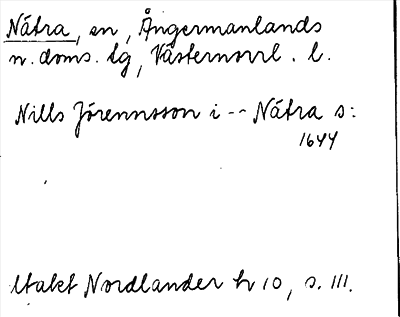 Nätra, en, Ångermanlands
n. doms. tg, Västernorrl. l.
Nills Jörennsson i -- Nätra s:
1644
Utakt Nordlander h 10, s. 111.